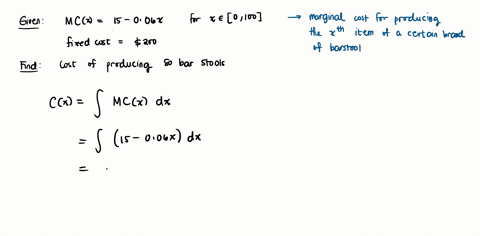 Given: MC(x) = 15 - 0.06x for x ∈ [0,100] → marginal cost for producing
the xth item of a certain brand
of barstool
fixed cost = $200
Find: cost of producing 50 bar stools
C(x) = ∫ MC(x) dx
= ∫ (15 - 0.06x) dx
=